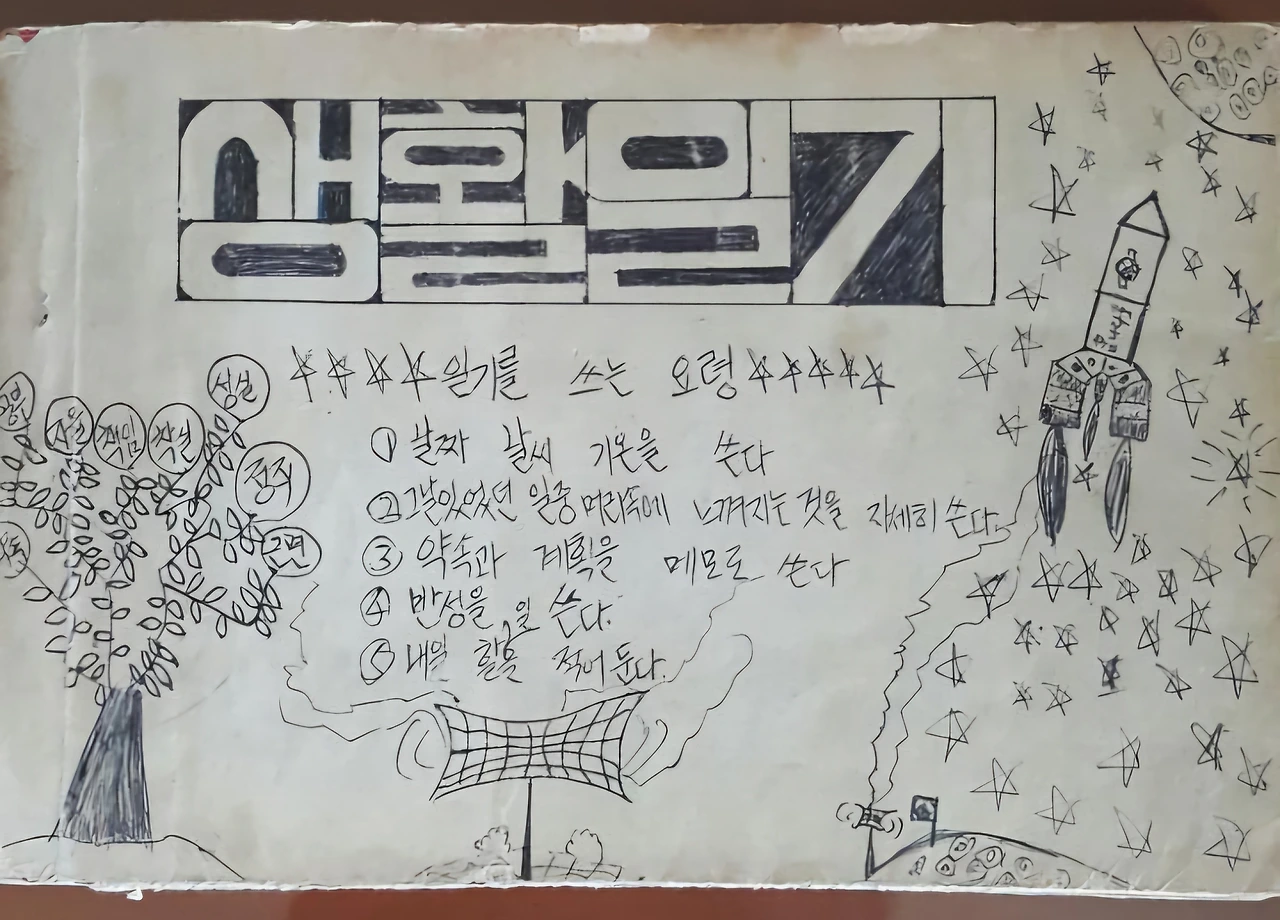 생활일기
일기를 쓰는 요령
① 날짜 날씨 기온을 쓴다
② 그날있었던 일중 머리속에 느껴지는 것을 자세히 쓴다.
③ 약속과 계획을 메모로 쓴다
④ 반성을 쓴다.
⑤ 내일 할일을 적어 둔다.
성실
책임
착실
정직
근면